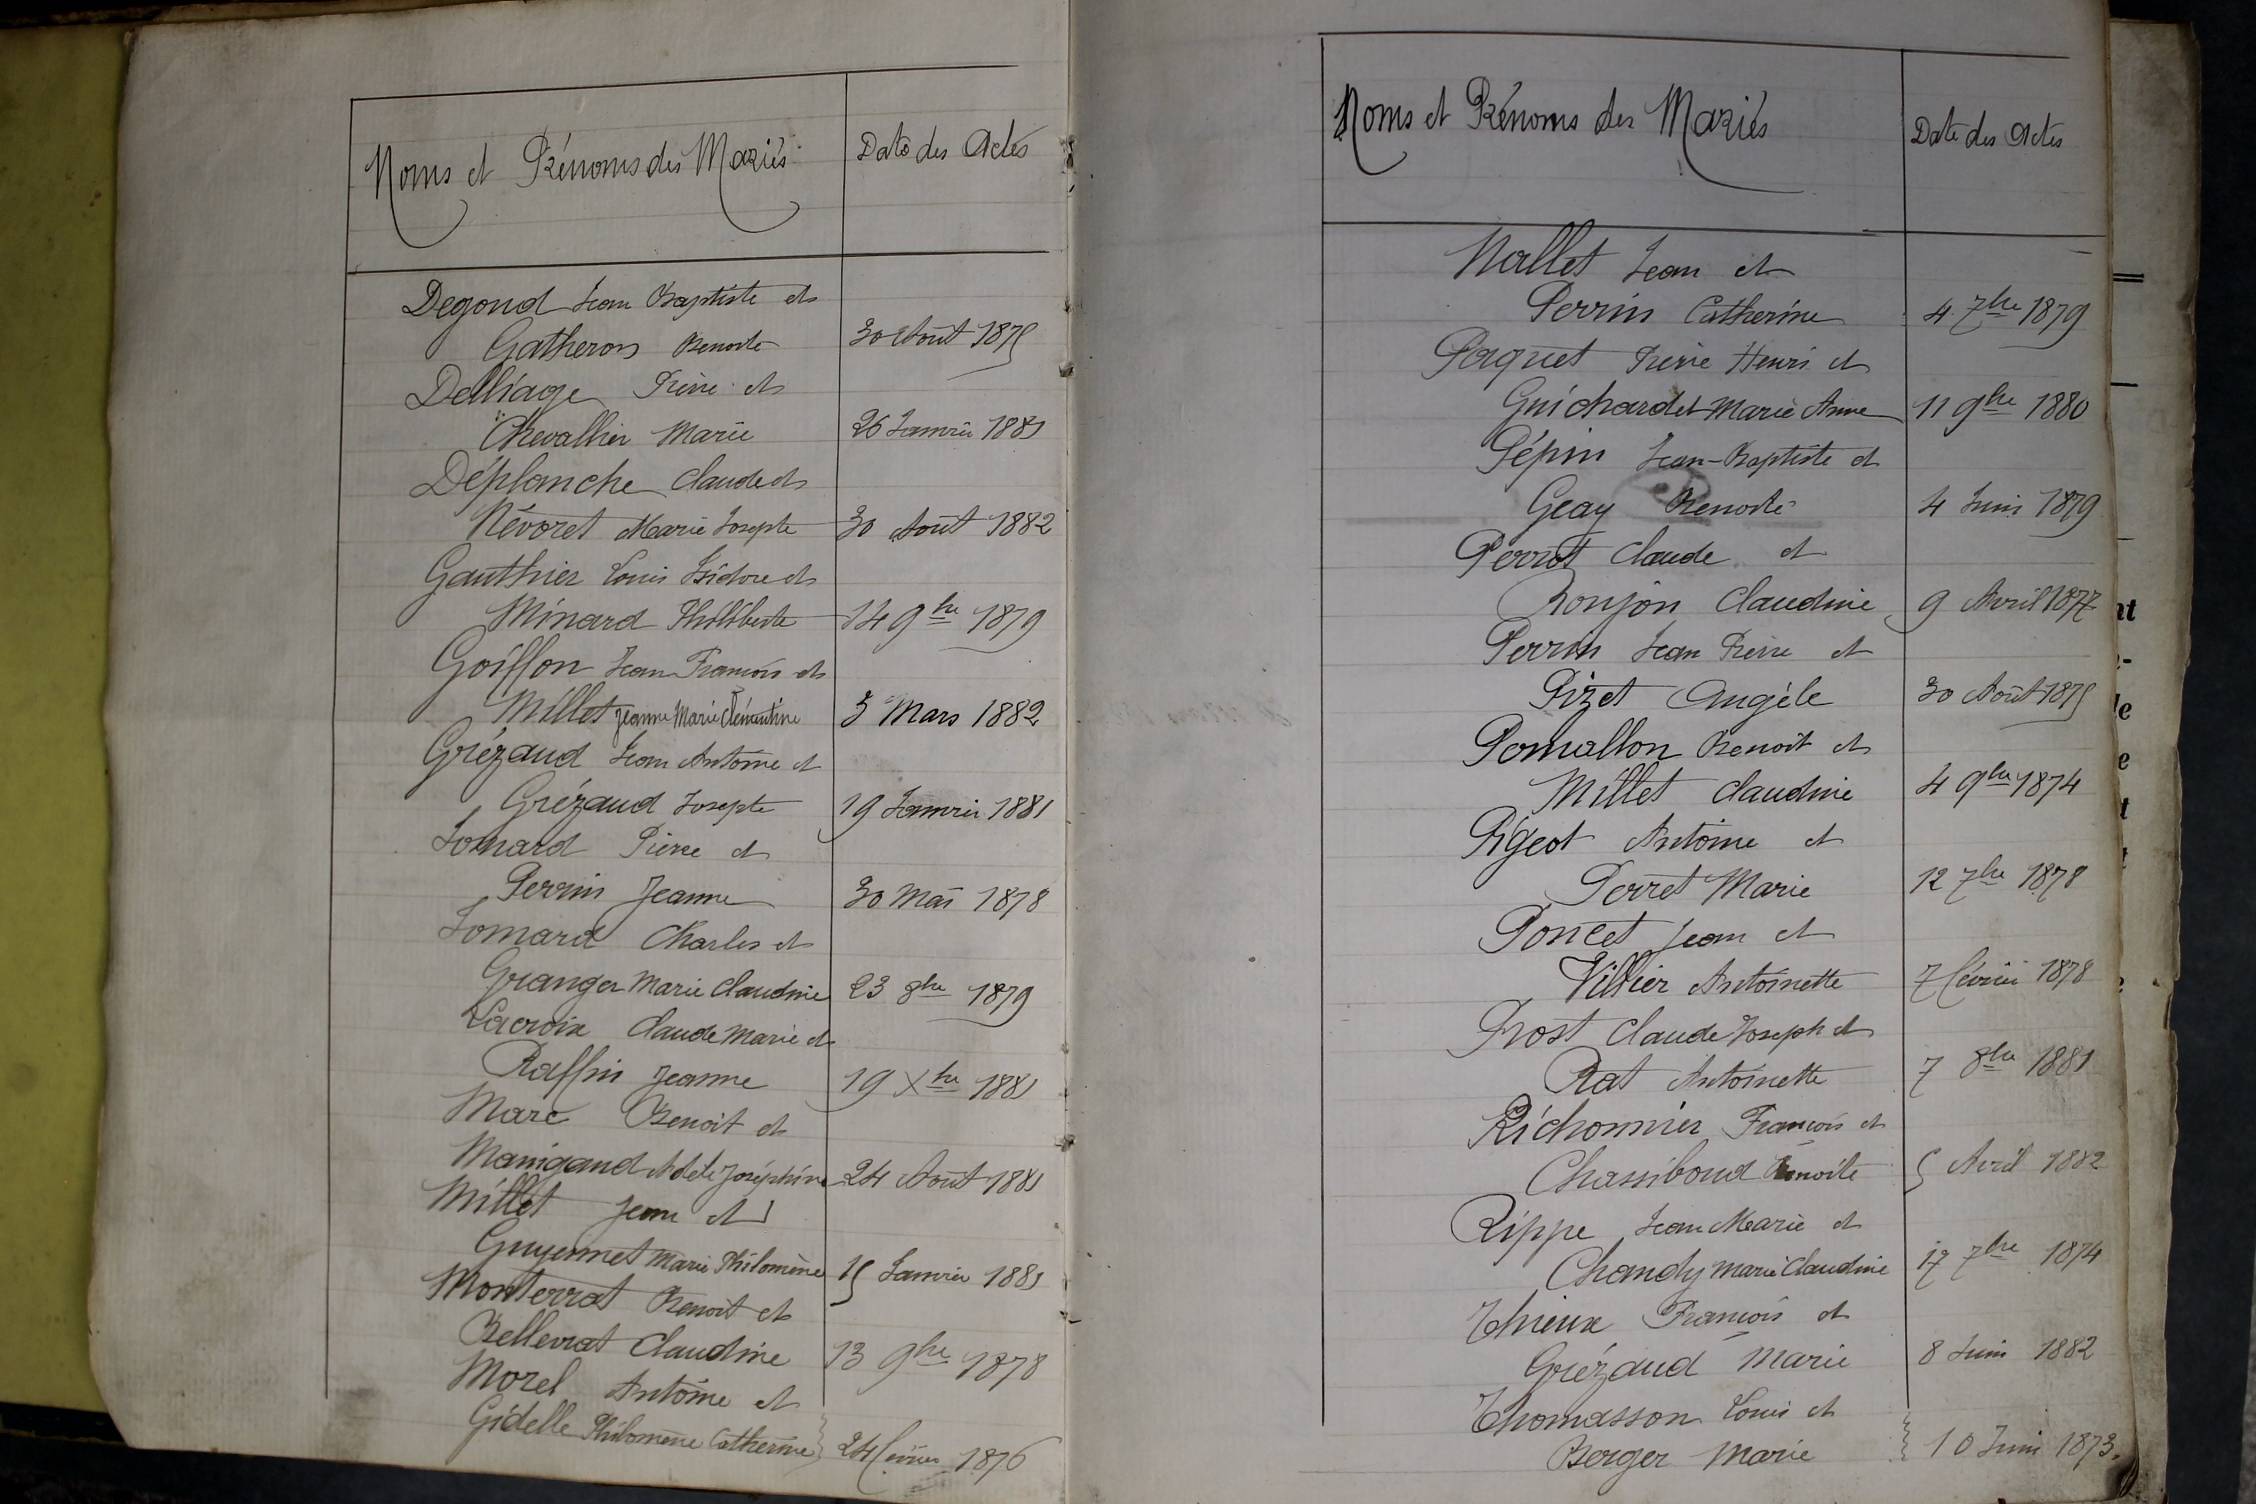 Noms et Prénoms des Mariés
Date des Actes
Degond Jean Baptiste et
Gatheron Benoite 30 Août 1875
Delliage Pierre et
Chevallier Marie 26 Janvier 1881
Déplanche Claude et
Névoret Marie Josepte 30 Août 1882
Gauthier Louis Isidore et
Minard Philiberte 14 9bre 1879
Goiffon Jean François et
Millet Jeanne Marie Clémentine 3 Mars 1882
Grézaud Jean Antoine et
Grézaud Josepte 19 Janvier 1881
Jomard Pierre et
Perrin Jeanne 30 Mai 1878
Jomard Charles et
Granger Marie Claudine 23 8bre 1879
Lacroix Claude Marie et
Raffin Jeanne 19 Xbre 1881
Marc Benoit et
Manigand Adele Joséphine 24 Août 1881
Millet Jean et
Guyennet Marie Philomène 15 Janvier 1881
Monterrat Benoit et
Bellevrat Claudine 13 9bre 1878
Morel Antoine et
Gidelle Philomène Catherine 24 février 1876
Noms et Prénoms des Mariés
Date des Actes
Nallet Jean et
Perrin Catherine 4 7bre 1879
Paquet Pierre Henri et
Guichardet Marie Anne 11 9bre 1880
Pépin Jean-Baptiste et
Geay Benoite 4 Juin 1879
Perrot Claude et
Bonjon Claudine 9 Avril 1877
Perrin Jean Pierre et
Pizet Angèle 30 Août 1875
Pomallon Benoit et
Millet Claudine 4 9bre 1874
Pigeot Antoine et
Perret Marie 12 7bre 1878
Poncet Jean et
Villier Antoinette 7 février 1878
Prost Claude Joseph et
Rat Antoinette 7 8bre 1881
Richonnier François et
Chassiboud Benoite 5 Avril 1882
Rippe Jean Marie et
Chandy Marie Claudine 17 7bre 1874
Thieux François et
Grézaud Marie 8 Juin 1882
Thomasson Louis et
Berger Marie 10 Juin 1873.